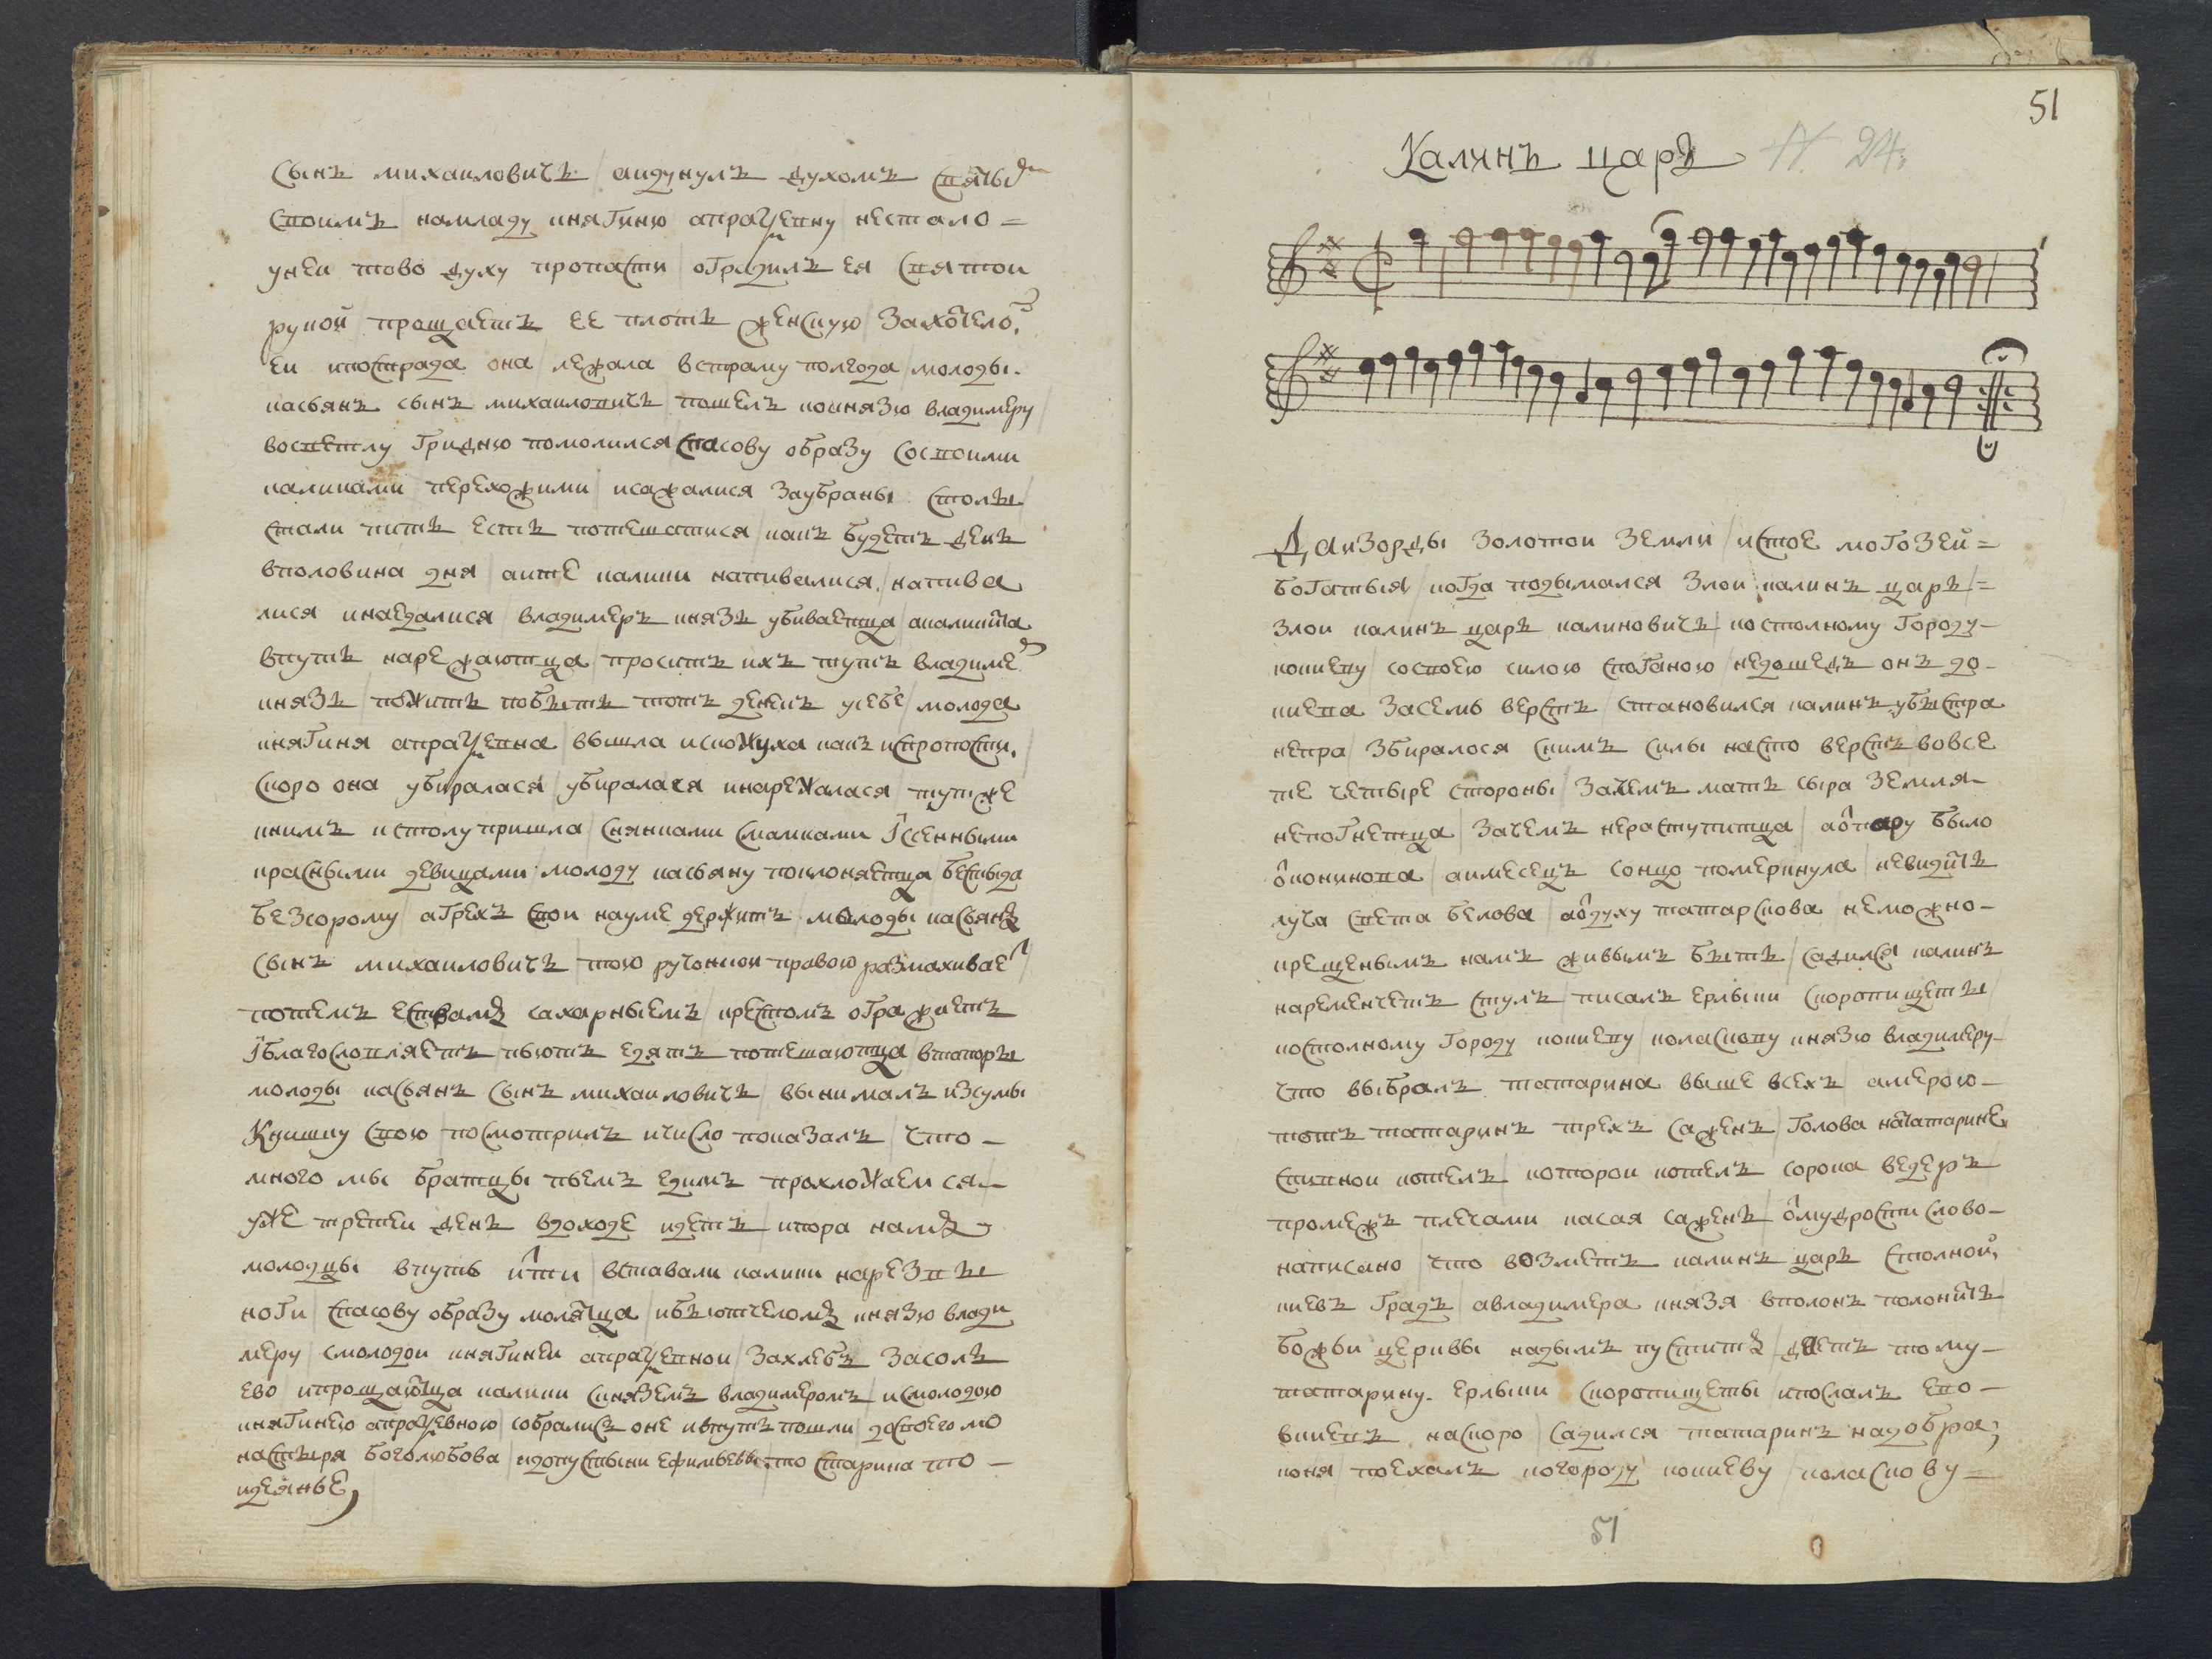 сынъ михаиловичъ / аидунулъ духомъ святым
своимъ / намладу княгиню апраксевну / нестало =
унеи тово духу пропасти / оградилъ ея святои
рукой / прощаетъ ее плоть женскую / захотелос
еи ипострада она / лежала встраму полгода / молоды
касьянъ сынъ михаиловичъ / пошелъ ко князю владимеру /
восветлу гридню помолился спасову образу / сосвоими
каликами перехожими / исажалися заубраны столы
стали пить есть потешатися / какъ будетъ день
вполовина дня / аите калики напивалися / напива
лися инаедалися / владимеръ князь убивается / акаликита
впуть наряжаются / проситъ ихъ тутъ владимер
князь / пожить побыть тотъ денекъ усебе / молода
княгиня апраксевна / вышла искожуха какъ ис пропости,
скоро она убиралася / убиралася инаряжалася / тутже
книмъ кстолу пришла / снянками смамками ісенными
красными девицами / молоду касьяну поклоняется / бестыда
безсорому / агрехъ свои науме держитъ / молоды касьянъ
сынъ михаиловичъ / тою ручонкои правою размахивает
потемъ ествамъ сахарныемъ / крестомъ огражаетъ
іблагословляетъ / пьютъ едятъ потешаются / втапоры
молоды касьянъ сынъ михаиловичъ / вынималъ изсумы
книшку свою / посмотрилъ ичисло показалъ / что –
много мы братцы пьемъ едимъ прохложаемся /–
уже третеи день вдоходе идетъ / ипора намъ
молодцы впуть итти / вставали калики нарезвы
ноги / спасову образу молятца / ибьютчеломъ князю влади
меру / смолодои княгинеи апраксевнои / захлебъ засоль
ево / ипрощаютца калики скняземъ владимеромъ / исмолодою
княгинею апраксевною / собрались оне ивпуть пошли / досвоего мо
настыря боголюбова / идопустыни ефимьевы, то старина то –
идеянье,
51
Калинъ царь N. 24.
Да изорды золотои земли / истое могозеи =
богатыя / когда подымался злои калинъ царь / =
злои калинъ царь калиновичъ / ко столному городу –
кокиеву / сосвоею силою споганою / недошедъ онъ до –
киева засемь верстъ / становился калинъ убыстра
непра / збиралося снимъ силы насто верстъ вовсе
те четыре стороны / зачемъ мать сыра земля –
непогнетца / зачемъ нераступитца / аотпару было
отконинова / аимесецъ сонцо померкнула / невидить
луча света белова / аотдуху татарскова неможно –
крещенымъ намъ живымъ быть / садился калинъ
наременчетъ стулъ / писалъ ерлыки скорописчеты
ко столному городу кокиеву / коласкову князю владимеру –
что выбралъ татарина выше всехъ амерою –
тотъ татаринъ трехъ саженъ / голова натотарине,
спивнои котелъ / которои котелъ сорока ведеръ
промежъ плечами касая сажень / отмудрости слово –
написано / что возметъ калинъ царь столной
киевъ градъ / авладимера князя вполонъ полонитъ
божьи церкви надымъ пуститъ / даетъ тому –
татарину. ерлыки скорописчеты / ипослалъ ево –
вкиевъ наскоро / садился татаринъ надобра,
коня / поехалъ когороду кокиеву / коласкову =
51